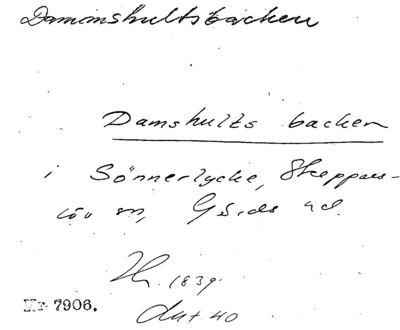 Dammshultsbacken
Damshults backen
i Sönnerlycke, Skeppars-
löv sn, Gärds hd.
1839
Nr 7906. Akt 40